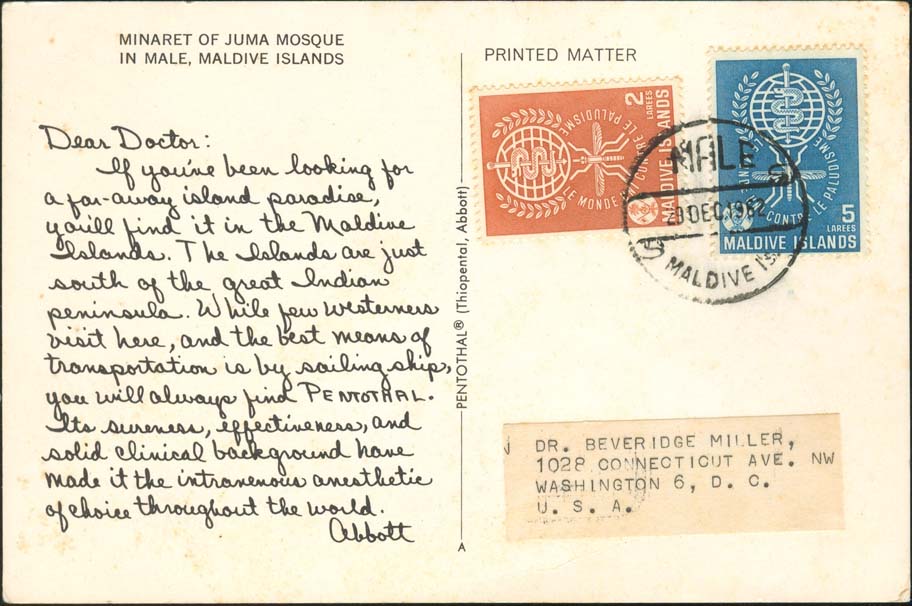 MINARET OF JUMA MOSQUE
IN MALE, MALDIVE ISLANDS
Dear Doctor:
If you've been looking for
a far-away island paradise,
you'll find it in the Maldive
Islands. The Islands are just
south of the great Indian
peninsula. While few westerners
visit here, and the best means of
transportation is by sailing ship,
you will always find PENTOTHAL.
Its sureness, effectiveness, and
solid clinical background have
made it the intravenous anesthetic
of choice throughout the world.
Abbott
PENTOTHAL® (Thiopental, Abbott)
A
PRINTED MATTER
2
LAREES
MALDIVE ISLANDS
LE MONDE UNI CONTRE LE PALUDISME
CONTRE LE PALUDISME
5
LAREES
MALDIVE ISLANDS
MALE
DEC 1962
MALDIVE IS
DR. BEVERIDGE MILLER,
1028 CONNECTICUT AVE. NW
WASHINGTON 6, D. C.
U. S. A.